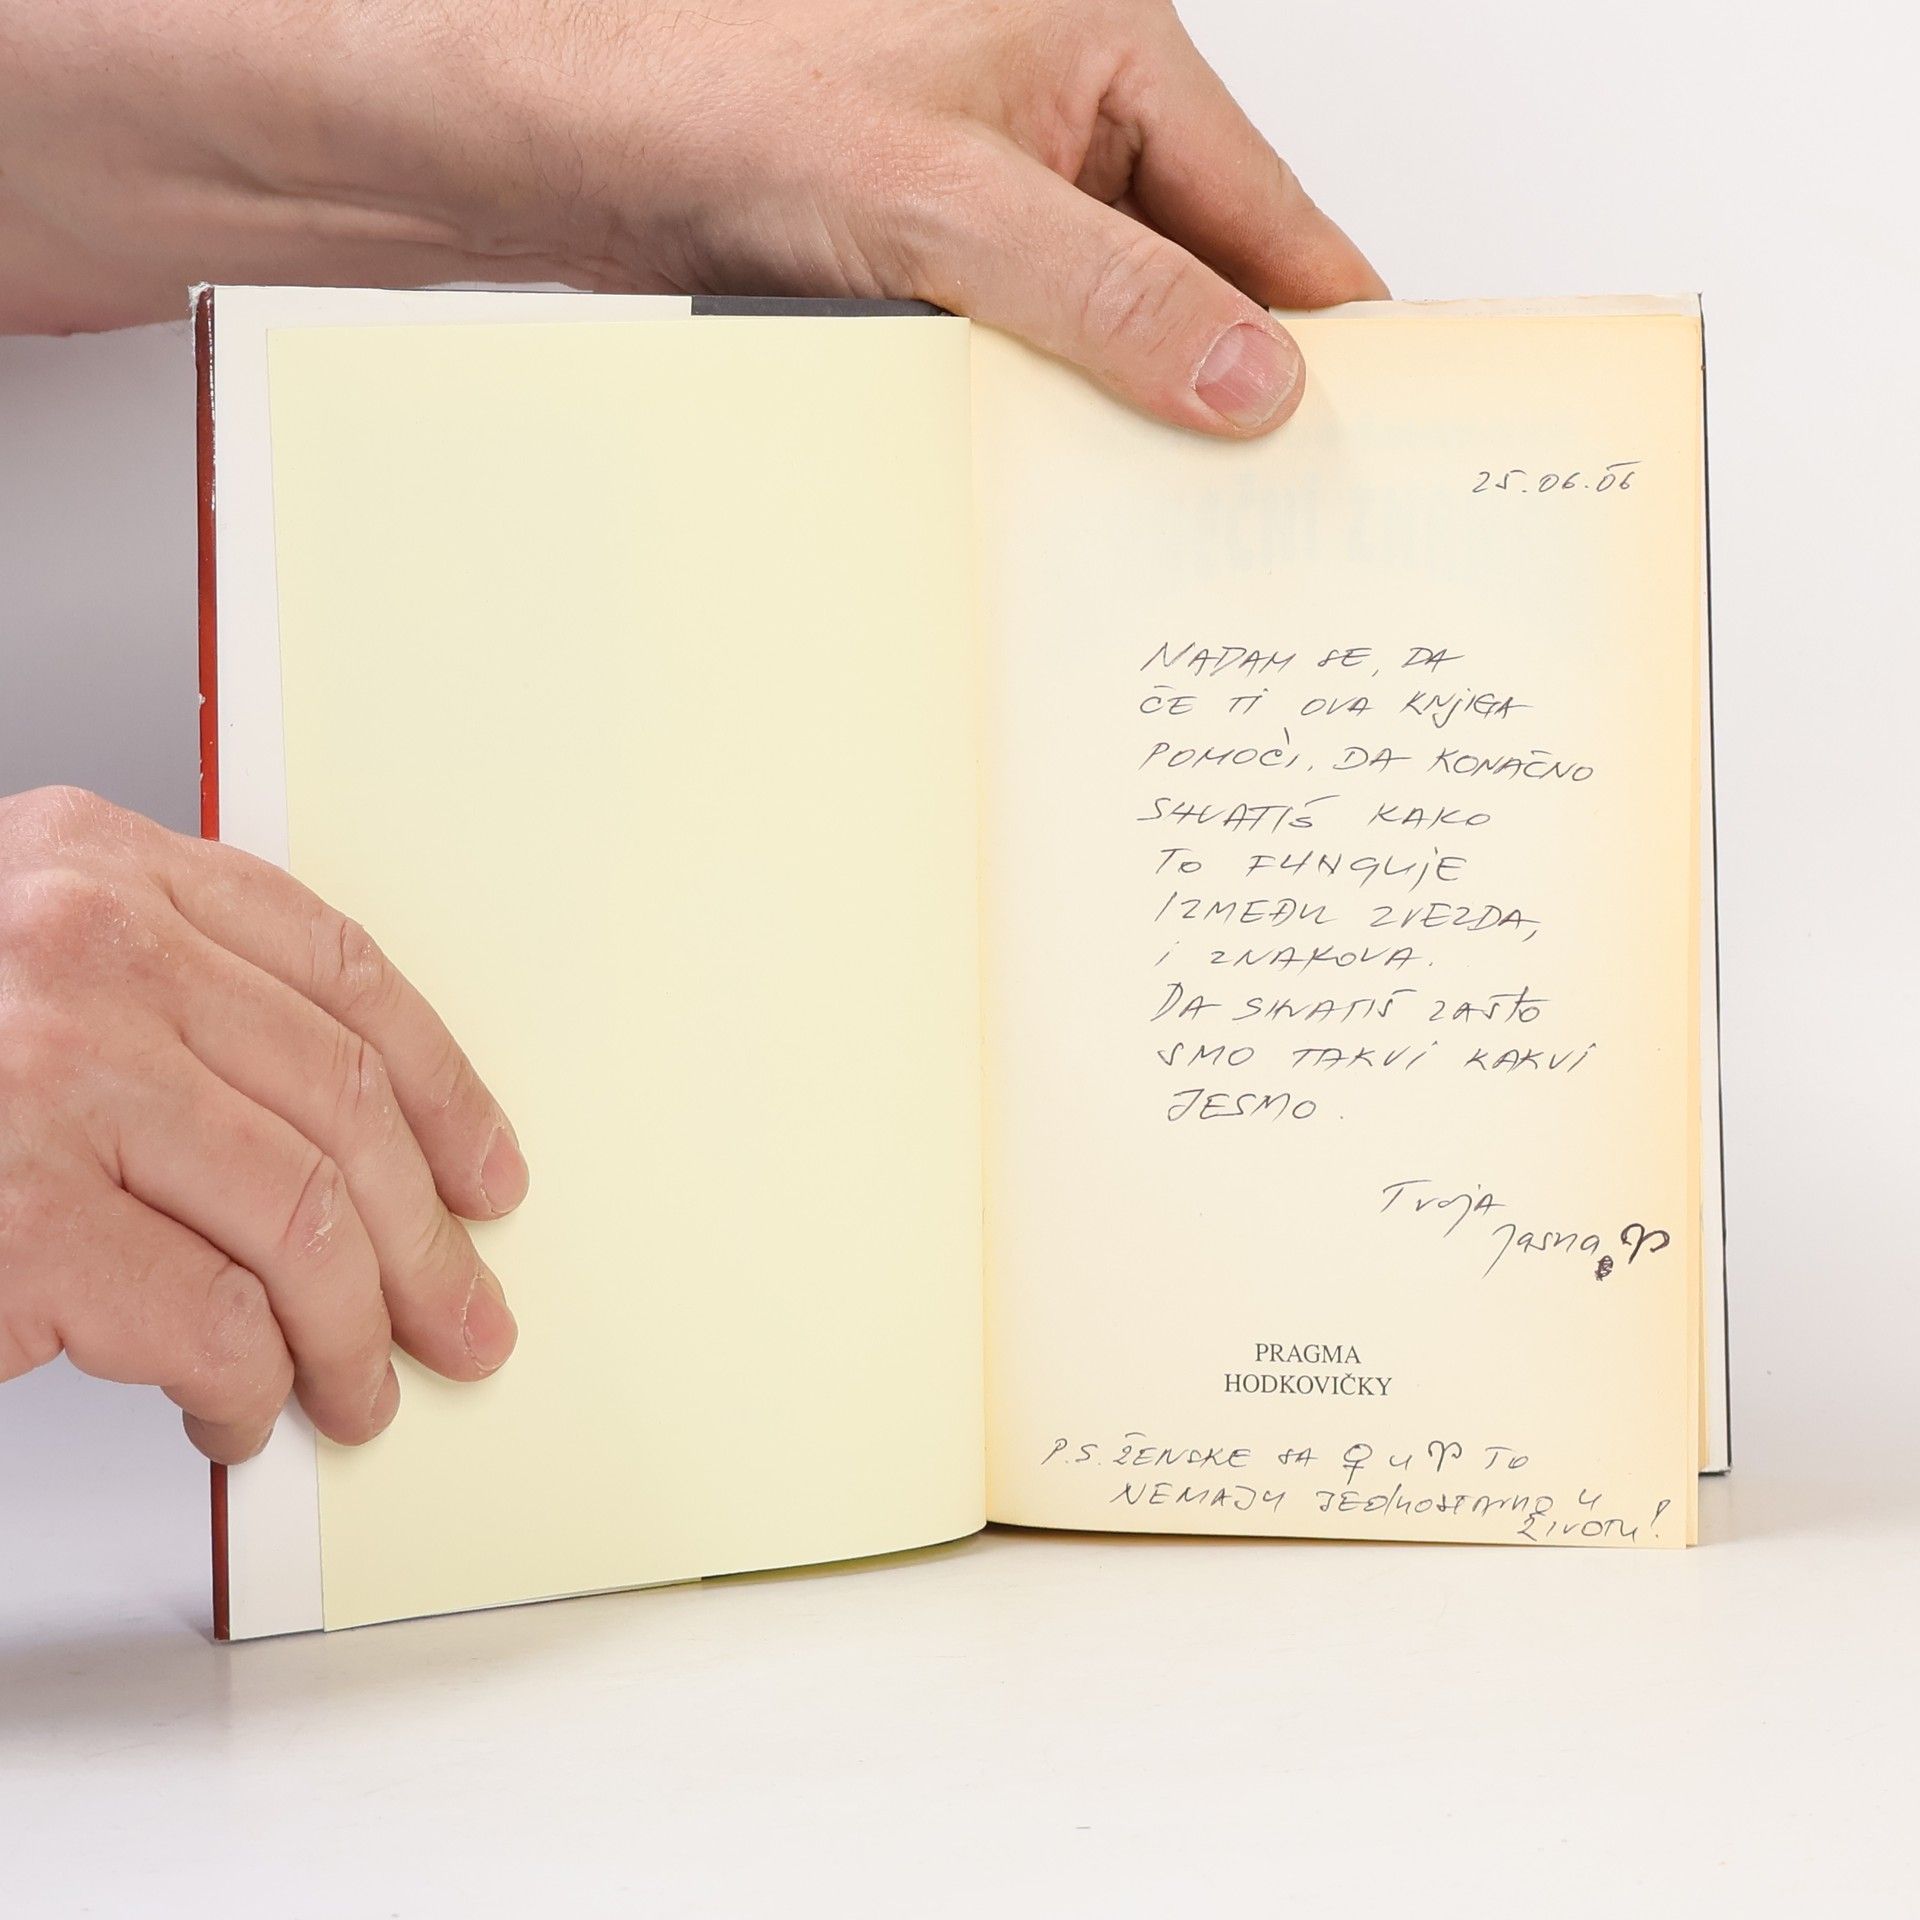 25.06.06
NADAM SE, DA
ĆE TI OVA KNjIGA
POMOĆI, DA KONAČNO
SHVATIŠ KAKO
TO FUNGUjE
IZMEĐU ZVEZDA,
i ZNAKOVA.
DA SHVATIŠ ZAŠTO
SMO TAKVi KAKVi
JESMO.
Tvoja
Jasna ♈
PRAGMA
HODKOVIČKY
P.S. ŽENSKE SA ♀ u ♈ TO
NEMAJU JEDNOSTAVNO U
ŽIVOTU!